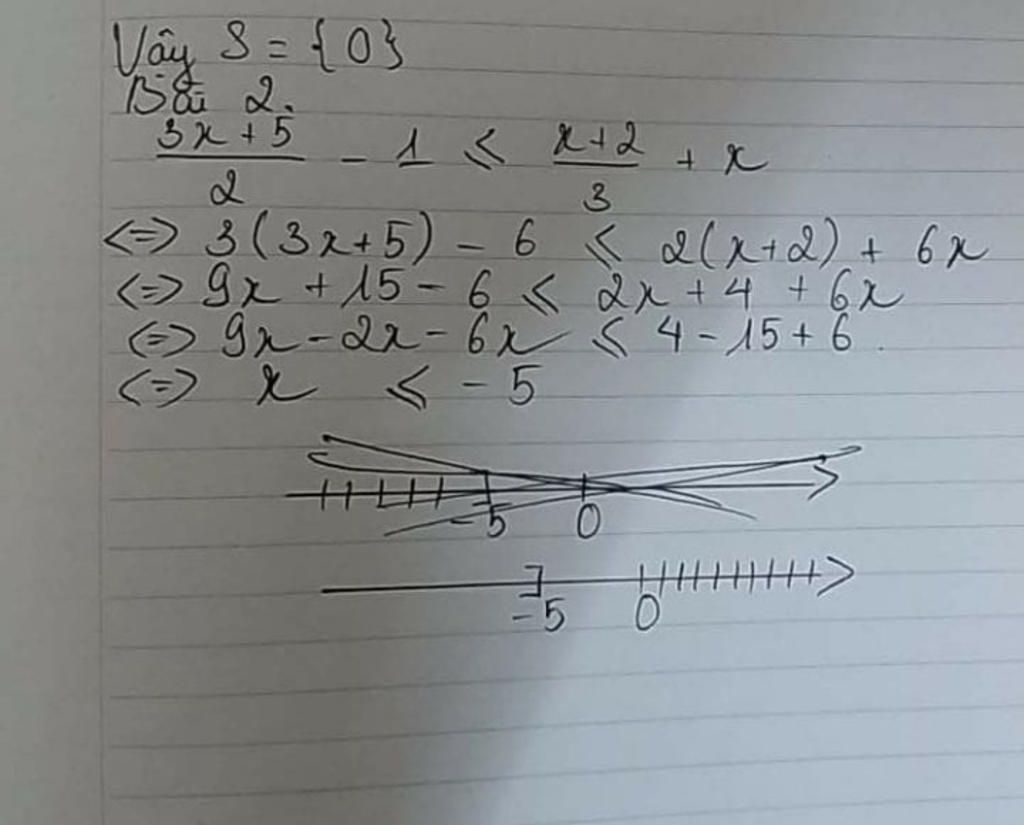 Vậy S = {0}
Bài 2.
(3x + 5)/2 - 1 ≤ (x+2)/3 + x
<=> 3(3x+5) - 6 ≤ 2(x+2) + 6x
<=> 9x + 15 - 6 ≤ 2x + 4 + 6x
<=> 9x - 2x - 6x ≤ 4 - 15 + 6.
<=> x ≤ -5
-5 0
-5 0